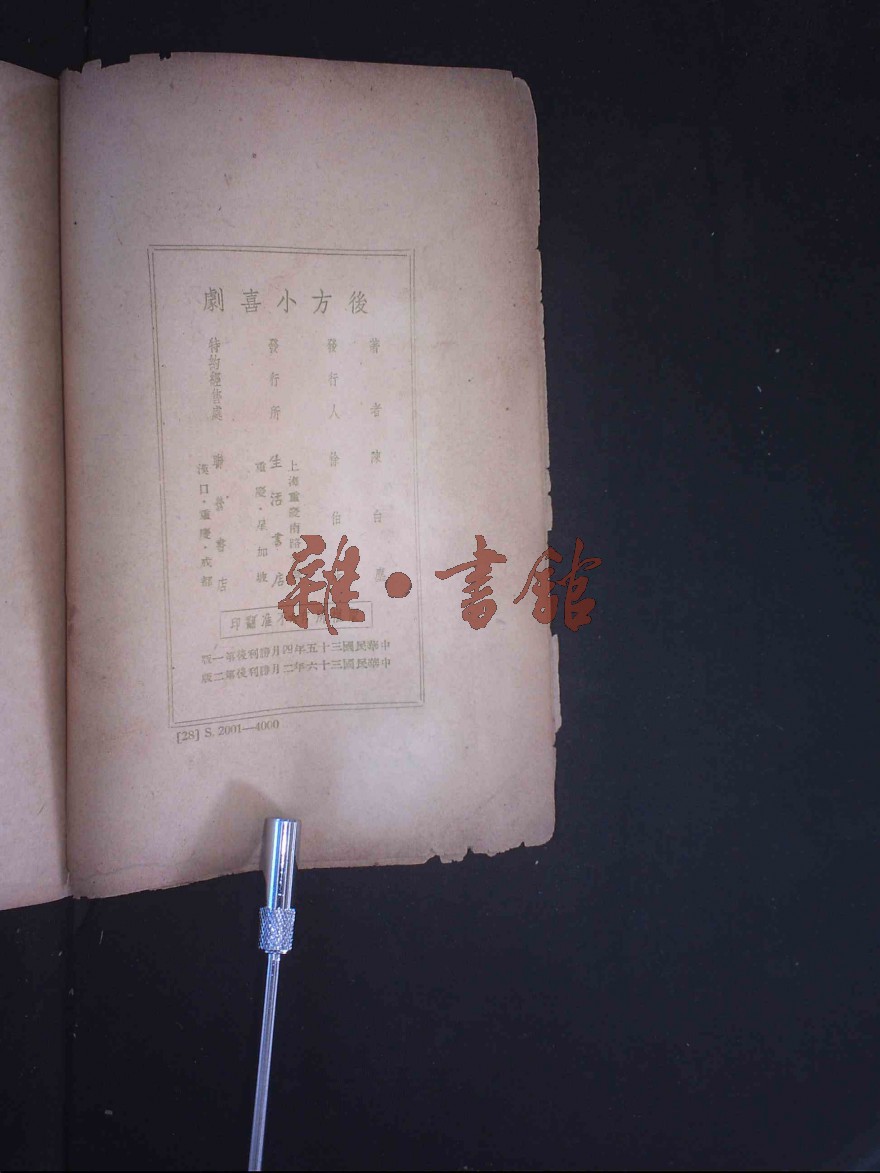 後方小喜劇
著者 陳白塵
發行人 徐伯
發行所 生活書店
上海重慶南路
重慶·星加坡
特約經售處 聯營書店
漢口·重慶·成都
准翻印
中華民國三十五年四月勝利後第一版
中華民國三十六年二月勝利後第二版
[28] S. 2001—4000
雜·書館